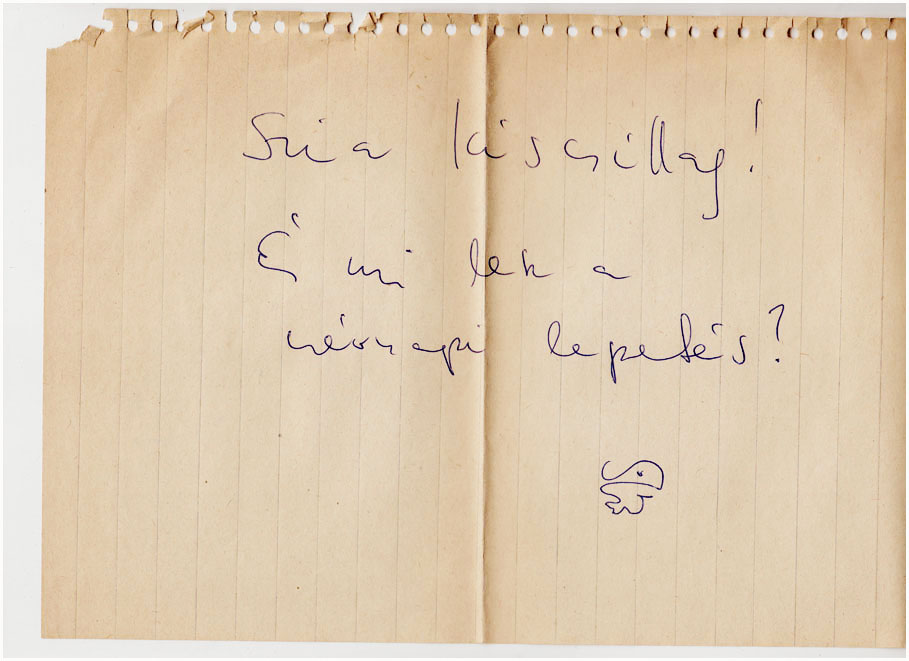 Szia kiscsillag!
É mi lek a
névnapi lepetés?